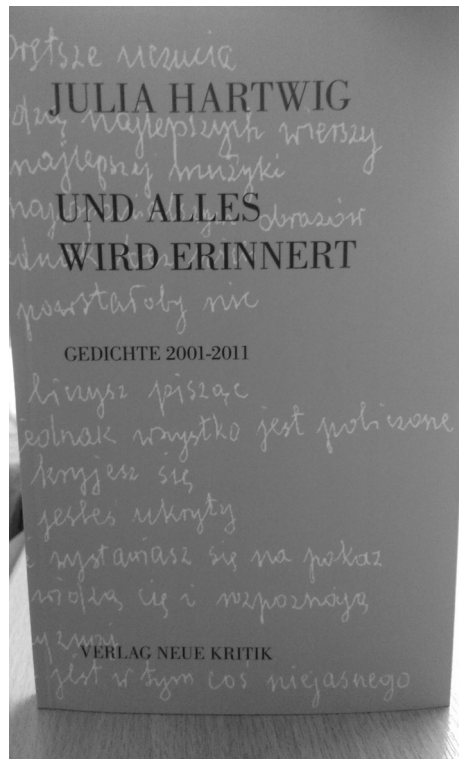 uczucia
JULIA HARTWIG
najlepszych wierszy
najlepszej muzyki
UND ALLES
obrazów
WIRD ERINNERT
powstałoby nic
GEDICHTE 2001-2011
liczysz pisząc
jednak wszystko jest policzone
kryjesz się
jesteś ukryty
wystawiasz się na pokaz
widzą cię i rozpoznają
VERLAG NEUE KRITIK
jest w tym coś niejasnego